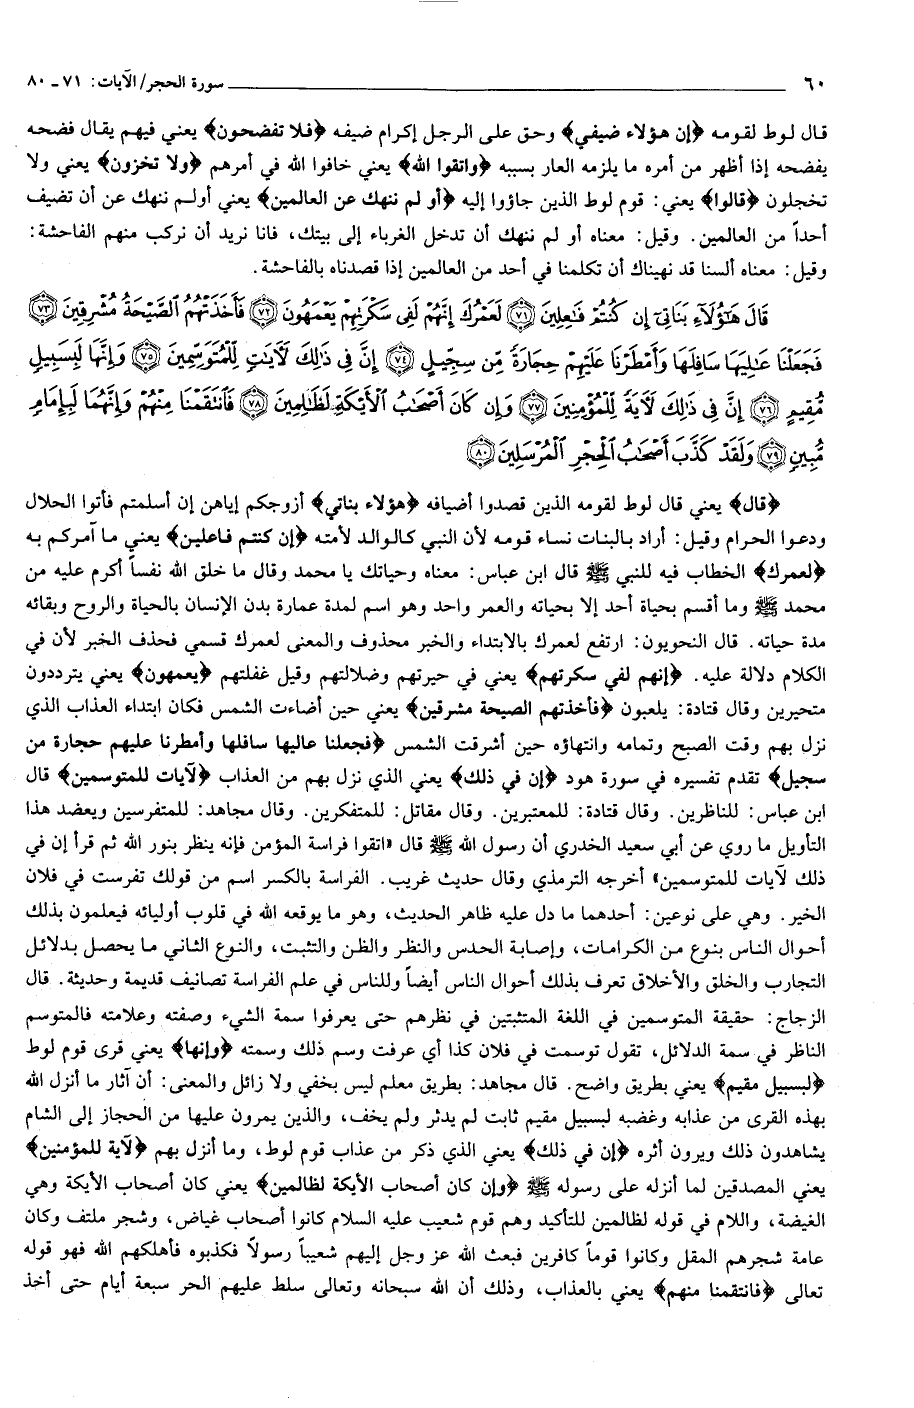 ٦٠ سورة الحجر/ الآيات: ٧١ ـ ٨٠
قال لوط لقومه ﴿إن هؤلاء ضيفي﴾ وحق على الرجل إكرام ضيفه ﴿فلا تفضحون﴾ يعني فيهم يقال فضحه
يفضحه إذا أظهر من أمره ما يلزمه العار بسببه ﴿واتقوا الله﴾ يعني خافوا الله في أمرهم ﴿ولا تخزون﴾ يعني ولا
تخجلون ﴿قالوا﴾ يعني: قوم لوط الذين جاؤوا إليه ﴿أو لم ننهك عن العالمين﴾ يعني أولم ننهك عن أن تضيف
أحداً من العالمين. وقيل: معناه أو لم ننهك أن تدخل الغرباء إلى بيتك، فانا نريد أن نركب منهم الفاحشة:
وقيل: معناه ألسنا قد نهيناك أن تكلمنا في أحد من العالمين إذا قصدناه بالفاحشة.
قَالَ هَٰٓؤُلَآءِ بَنَاتِىٓ إِن كُنتُمْ فَٰعِلِينَ ﴿٧١﴾ لَعَمْرُكَ إِنَّهُمْ لَفِى سَكْرَتِهِمْ يَعْمَهُونَ ﴿٧٢﴾ فَأَخَذَتْهُمُ ٱلصَّيْحَةُ مُشْرِقِينَ ﴿٧٣﴾
فَجَعَلْنَا عَٰلِيَهَا سَافِلَهَا وَأَمْطَرْنَا عَلَيْهِمْ حِجَارَةً مِّن سِجِّيلٍ ﴿٧٤﴾ إِنَّ فِى ذَٰلِكَ لَأَيَٰتٍ لِّلْمُتَوَسِّمِينَ ﴿٧٥﴾ وَإِنَّهَا لَبِسَبِيلٍ
مُّقِيمٍ ﴿٧٦﴾ إِنَّ فِى ذَٰلِكَ لَأَيَةً لِّلْمُؤْمِنِينَ ﴿٧٧﴾ وَإِن كَانَ أَصْحَٰبُ ٱلْأَيْكَةِ لَظَٰلِمِينَ ﴿٧٨﴾ فَٱنتَقَمْنَا مِنْهُمْ وَإِنَّهُمَا لَبِإِمَامٍ
مُّبِينٍ ﴿٧٩﴾ وَلَقَدْ كَذَّبَ أَصْحَٰبُ ٱلْحِجْرِ ٱلْمُرْسَلِينَ ﴿٨٠﴾
﴿قال﴾ يعني قال لوط لقومه الذين قصدوا أضيافه ﴿هؤلاء بناتي﴾ أزوجكم إياهن إن أسلمتم فأتوا الحلال
ودعوا الحرام وقيل: أراد بالبنات نساء قومه لأن النبي كالوالد لأمته ﴿إن كنتم فاعلين﴾ يعني ما آمركم به
﴿لعمرك﴾ الخطاب فيه للنبي ﷺ قال ابن عباس: معناه وحياتك يا محمد وقال ما خلق الله نفساً أكرم عليه من
محمد ﷺ وما أقسم بحياة أحد إلا بحياته والعمر واحد وهو اسم لمدة عمارة بدن الإنسان بالحياة والروح وبقائه
مدة حياته. قال النحويون: ارتفع لعمرك بالابتداء والخبر محذوف والمعنى لعمرك قسمي فحذف الخبر لأن في
الكلام دلالة عليه. ﴿إنهم لفي سكرتهم﴾ يعني في حيرتهم وضلالتهم وقيل غفلتهم ﴿يعمهون﴾ يعني يترددون
متحيرين وقال قتادة: يلعبون ﴿فأخذتهم الصيحة مشرقين﴾ يعني حين أضاءت الشمس فكان ابتداء العذاب الذي
نزل بهم وقت الصبح وتمامه وانتهاؤه حين أشرقت الشمس ﴿فجعلنا عاليها سافلها وأمطرنا عليهم حجارة من
سجيل﴾ تقدم تفسيره في سورة هود ﴿إن في ذلك﴾ يعني الذي نزل بهم من العذاب ﴿لآيات للمتوسمين﴾ قال
ابن عباس: للناظرين. وقال قتادة: للمعتبرين. وقال مقاتل: للمتفكرين. وقال مجاهد: للمتفرسين ويعضد هذا
التأويل ما روي عن أبي سعيد الخدري أن رسول الله ﷺ قال «اتقوا فراسة المؤمن فإنه ينظر بنور الله ثم قرأ إن في
ذلك لآيات للمتوسمين» أخرجه الترمذي وقال حديث غريب. الفراسة بالكسر اسم من قولك تفرست في فلان
الخير. وهي على نوعين: أحدهما ما دل عليه ظاهر الحديث، وهو ما يوقعه الله في قلوب أوليائه فيعلمون بذلك
أحوال الناس بنوع من الكرامات، وإصابة الحدس والنظر والظن والتثبت، والنوع الثاني ما يحصل بدلائل
التجارب والخلق والأخلاق تعرف بذلك أحوال الناس أيضاً وللناس في علم الفراسة تصانيف قديمة وحديثة. قال
الزجاج: حقيقة المتوسمين في اللغة المتثبتين في نظرهم حتى يعرفوا سمة الشيء وصفته وعلامته فالمتوسم
الناظر في سمة الدلائل، تقول توسمت في فلان كذا أي عرفت وسم ذلك وسمته ﴿وإنها﴾ يعني قرى قوم لوط
﴿لبسبيل مقيم﴾ يعني بطريق واضح. قال مجاهد: بطريق معلم ليس بخفي ولا زائل والمعنى: أن آثار ما أنزل الله
بهذه القرى من عذابه وغضبه لبسبيل مقيم ثابت لم يدثر ولم يخف، والذين يمرون عليها من الحجاز إلى الشام
يشاهدون ذلك ويرون أثره ﴿إن في ذلك﴾ يعني الذي ذكر من عذاب قوم لوط، وما أنزل بهم ﴿لآية للمؤمنين﴾
يعني المصدقين لما أنزله على رسوله ﷺ ﴿وإن كان أصحاب الأيكة لظالمين﴾ يعني كان أصحاب الأيكة وهي
الغيضة، واللام في قوله لظالمين للتأكيد وهم قوم شعيب عليه السلام كانوا أصحاب غياض، وشجر ملتف وكان
عامة شجرهم المقل وكانوا قوماً كافرين فبعث الله عز وجل إليهم شعيباً رسولاً فكذبوه فأهلكهم الله فهو قوله
تعالى ﴿فانتقمنا منهم﴾ يعني بالعذاب، وذلك أن الله سبحانه وتعالى سلط عليهم الحر سبعة أيام حتى أخذ